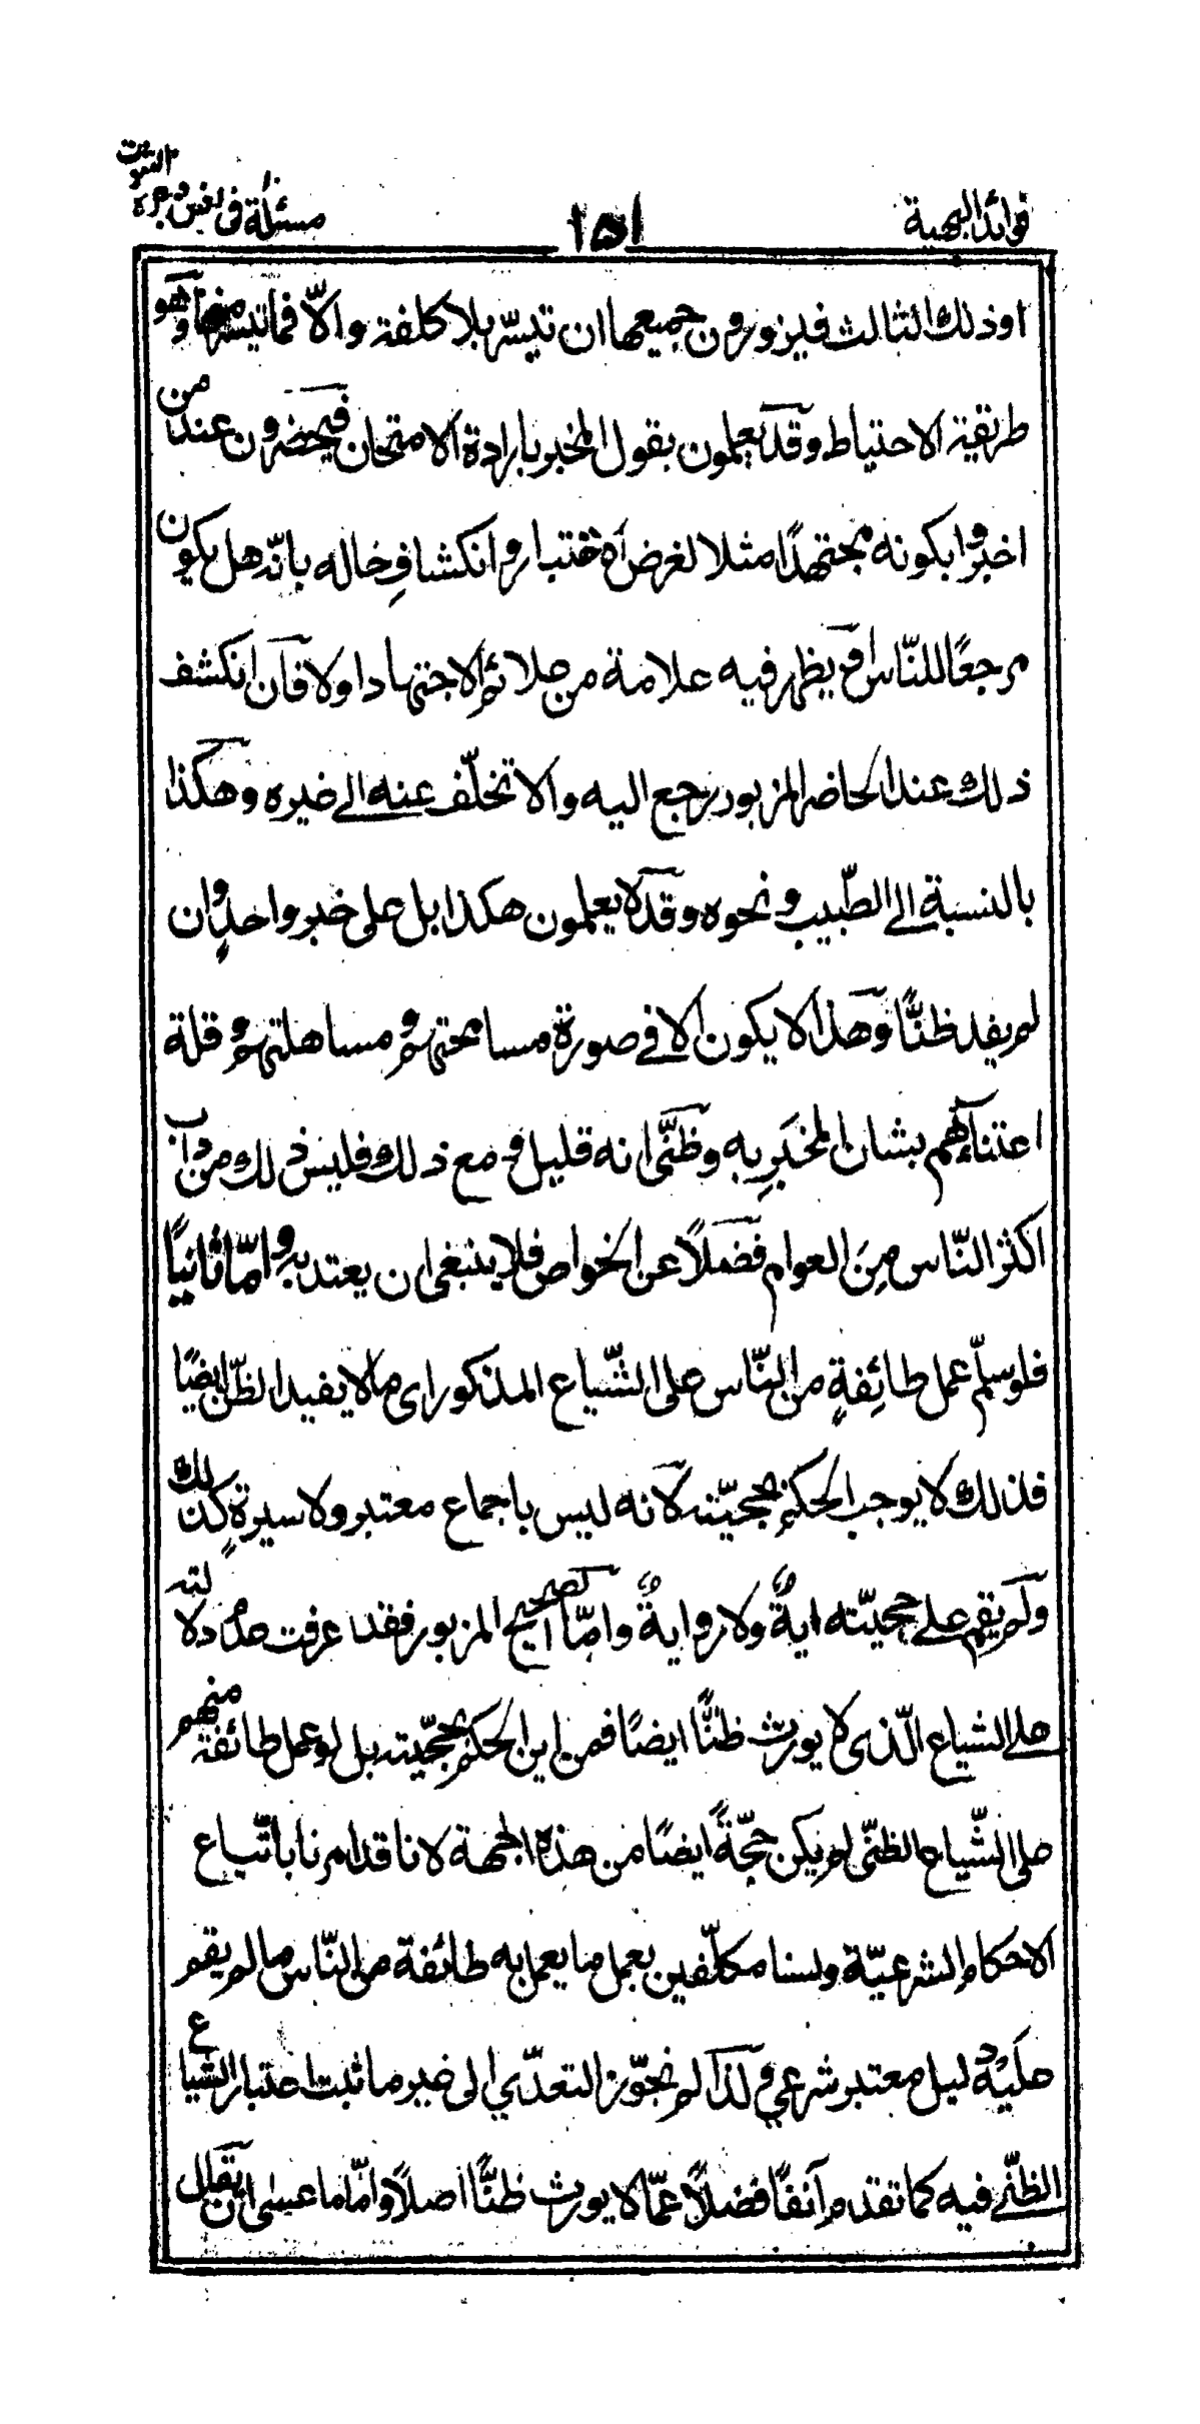 فوائد البهية
١٥١
مسئلة فی
او ذلك الثالث فيزورون جميعها ان تيسّر بلا كلفة والّا فما تيسّر منها وهو
طريقة الاحتياط وقد يعملون بقول المخبر بارادة الامتحان فيحضرون عند من
اخبروا بكونه مجتهدًا مثلا لغرض الاختبار وانكشافِ حاله بانّه هل يكون
مرجعًا للنّاس او يظهر فيه علامة من علائم الاجتهاد اولا فان انكشف
ذلك عند الحاضر المزبور رجع اليه والا تخلّف عنه الى غيره وهكذا
بالنسبة الى الطّبيب ونحوه وقد لا يعملون هكذا بل على خبر واحدٍ وان
لم يفد ظنًّا وهذا لا يكون الا في صورة مسامحتهم ومساهلتهم وقلة
اعتنائهم بشان المخبَرِ به وظنّى انه قليل ومع ذلك فليس ذلك من داب
اكثر النّاس مِنَ العوام فضلاً عن الخواص فلا ينبغى ان يعتد به وامّا ثانيًا
فلو سلّم عمل طائِفةٍ من النّاس على الشّياع المذكور اى ما لا يفيد الظّن ايضًا
فذلك لا يوجب الحكم بحجيّته لانه ليس باجماع معتبر ولا سيرةٍ كذلك
ولم يقم على حجيّته ايةٌ ولا روايةٌ وامّا الصحيح المزبور فقد عرفت عدم دلالته
على الشياع الّذى لا يورث ظنًّا ايضًا فمن اين الحكم بحجّيته بل لو عمل طائفة منهم
على الشّياع الظنّى لم يكن حجّةً ايضًا من هذه الجهة لانا قد امرنا باتّباع
الاحكام الشرعيّة ولسنا مكلّفين بعمل ما يعمل به طائفة من النّاس ما لم يقم
عليه دليل معتبر شرعي ولذا لم نجوّز التعدّي الى غير ما ثبت اعتبار الشياع
الظنّى فيه كما تقدم آنفًا فضلاً عمّا لا يورث ظنًّا اصلاً وامّا ما عسى ان يقال